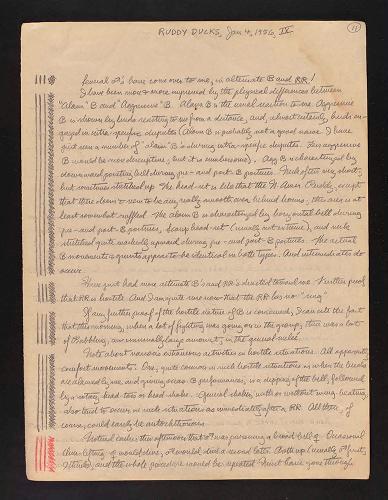 RUDDY DUCKS, Jan 4, 1956, IV
11
Several ♂'s have come over to me, in alternate B and RR!
I have been more & more impressed by the physical differences between
"Alarm" B and "Aggressive" B. Alarm B is the usual reaction to me. Aggressive
B is shown by birds reacting to me from a distance, and, almost certainly, birds en-
gaged in intra-specific disputes (Alarm B is probably not a good name. I have
just seen a number of "alarm" B's during intra-specific disputes. Less aggressive
B would be more descriptive, but it is cumbersome). Agg B is characterized by
downward pointing bill during pre- and post-B postures. Neck often very short,
but sometimes stretched up. The head-set is like that of the N. Amer. Ruddy, except
that there doesn't seem to be any really smooth area behind horns, this area is at
least somewhat ruffled. The alarm B is characterized by horizontal bill during
pre- and post-B postures, heavy head-set (usually not extreme), and neck
stretched quite markedly upward during pre- and post-B postures. The actual
B movements to seem to appear to be identical in both types. And intermediates do
occur.
Have just had more alternate B's and RR's directed toward me. Further proof
that RR is hostile. And I am quite sure now that the RR has no "ring"
If any further proof of the hostile nature of B is concerned, I can cite the fact
that this morning, when a lot of fighting was going on in the group, there was a lot
of Bobbling, an unusually large amount, in the general melee.
Note about various extraneous activities in hostile situations. All apparently
comfort movements. One, quite common in such hostile situations as when the birds
are alarmed by me, and giving occas B performances, is a dipping of the bill, followed
by a rotary head-toss or head-shake. General shakes, with or without wing-beating,
also tend to occur in such situations as immediately after a RR. All these, of
course, could easily be autochthonous.
Noticed earlier this afternoon that ♂ was pursuing a brood
would dive, ♂ would dive a second later. Both up (usually ♂ first,
I think), and the whole procedure would be repeated. Must have gone through